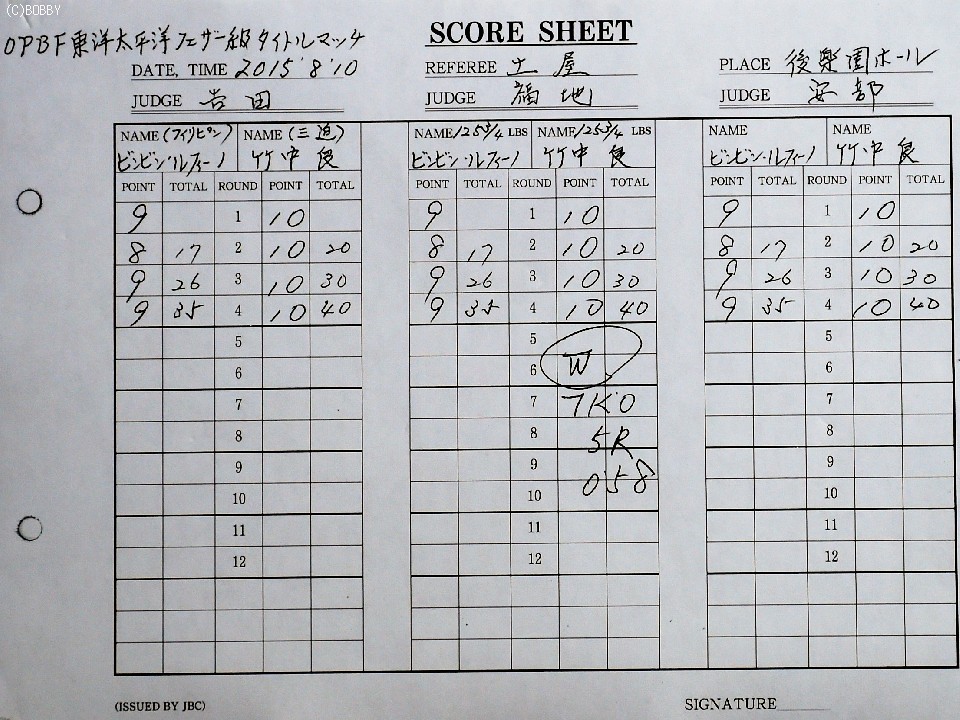 (C)BOBBY
OPBF東洋太平洋フェザー級タイトルマッチ
SCORE SHEET
DATE, TIME 2015'8'10 REFEREE 土屋 PLACE 後楽園ホール
JUDGE 吉田 JUDGE 福地 JUDGE 安部
NAME (フィリピン) NAME (三迫) NAME 125 3/4 LBS NAME 125 3/4 LBS NAME NAME
ビンビン・ルフィーノ 竹中良 ビンビン・ルフィーノ 竹中良 ビンビン・ルフィーノ 竹中良
POINT TOTAL ROUND POINT TOTAL POINT TOTAL ROUND POINT TOTAL POINT TOTAL ROUND POINT TOTAL
9 1 10 9 1 10 9 1 10
8 17 2 10 20 8 17 2 10 20 8 17 2 10 20
9 26 3 10 30 9 26 3 10 30 9 26 3 10 30
9 35 4 10 40 9 35 4 10 40 9 35 4 10 40
5 5 5
6 6 W 6
7 7 TKO 7
8 8 5R 8
9 9 9
10 10 0'58 10
11 11 11
12 12 12
(ISSUED BY JBC) SIGNATURE